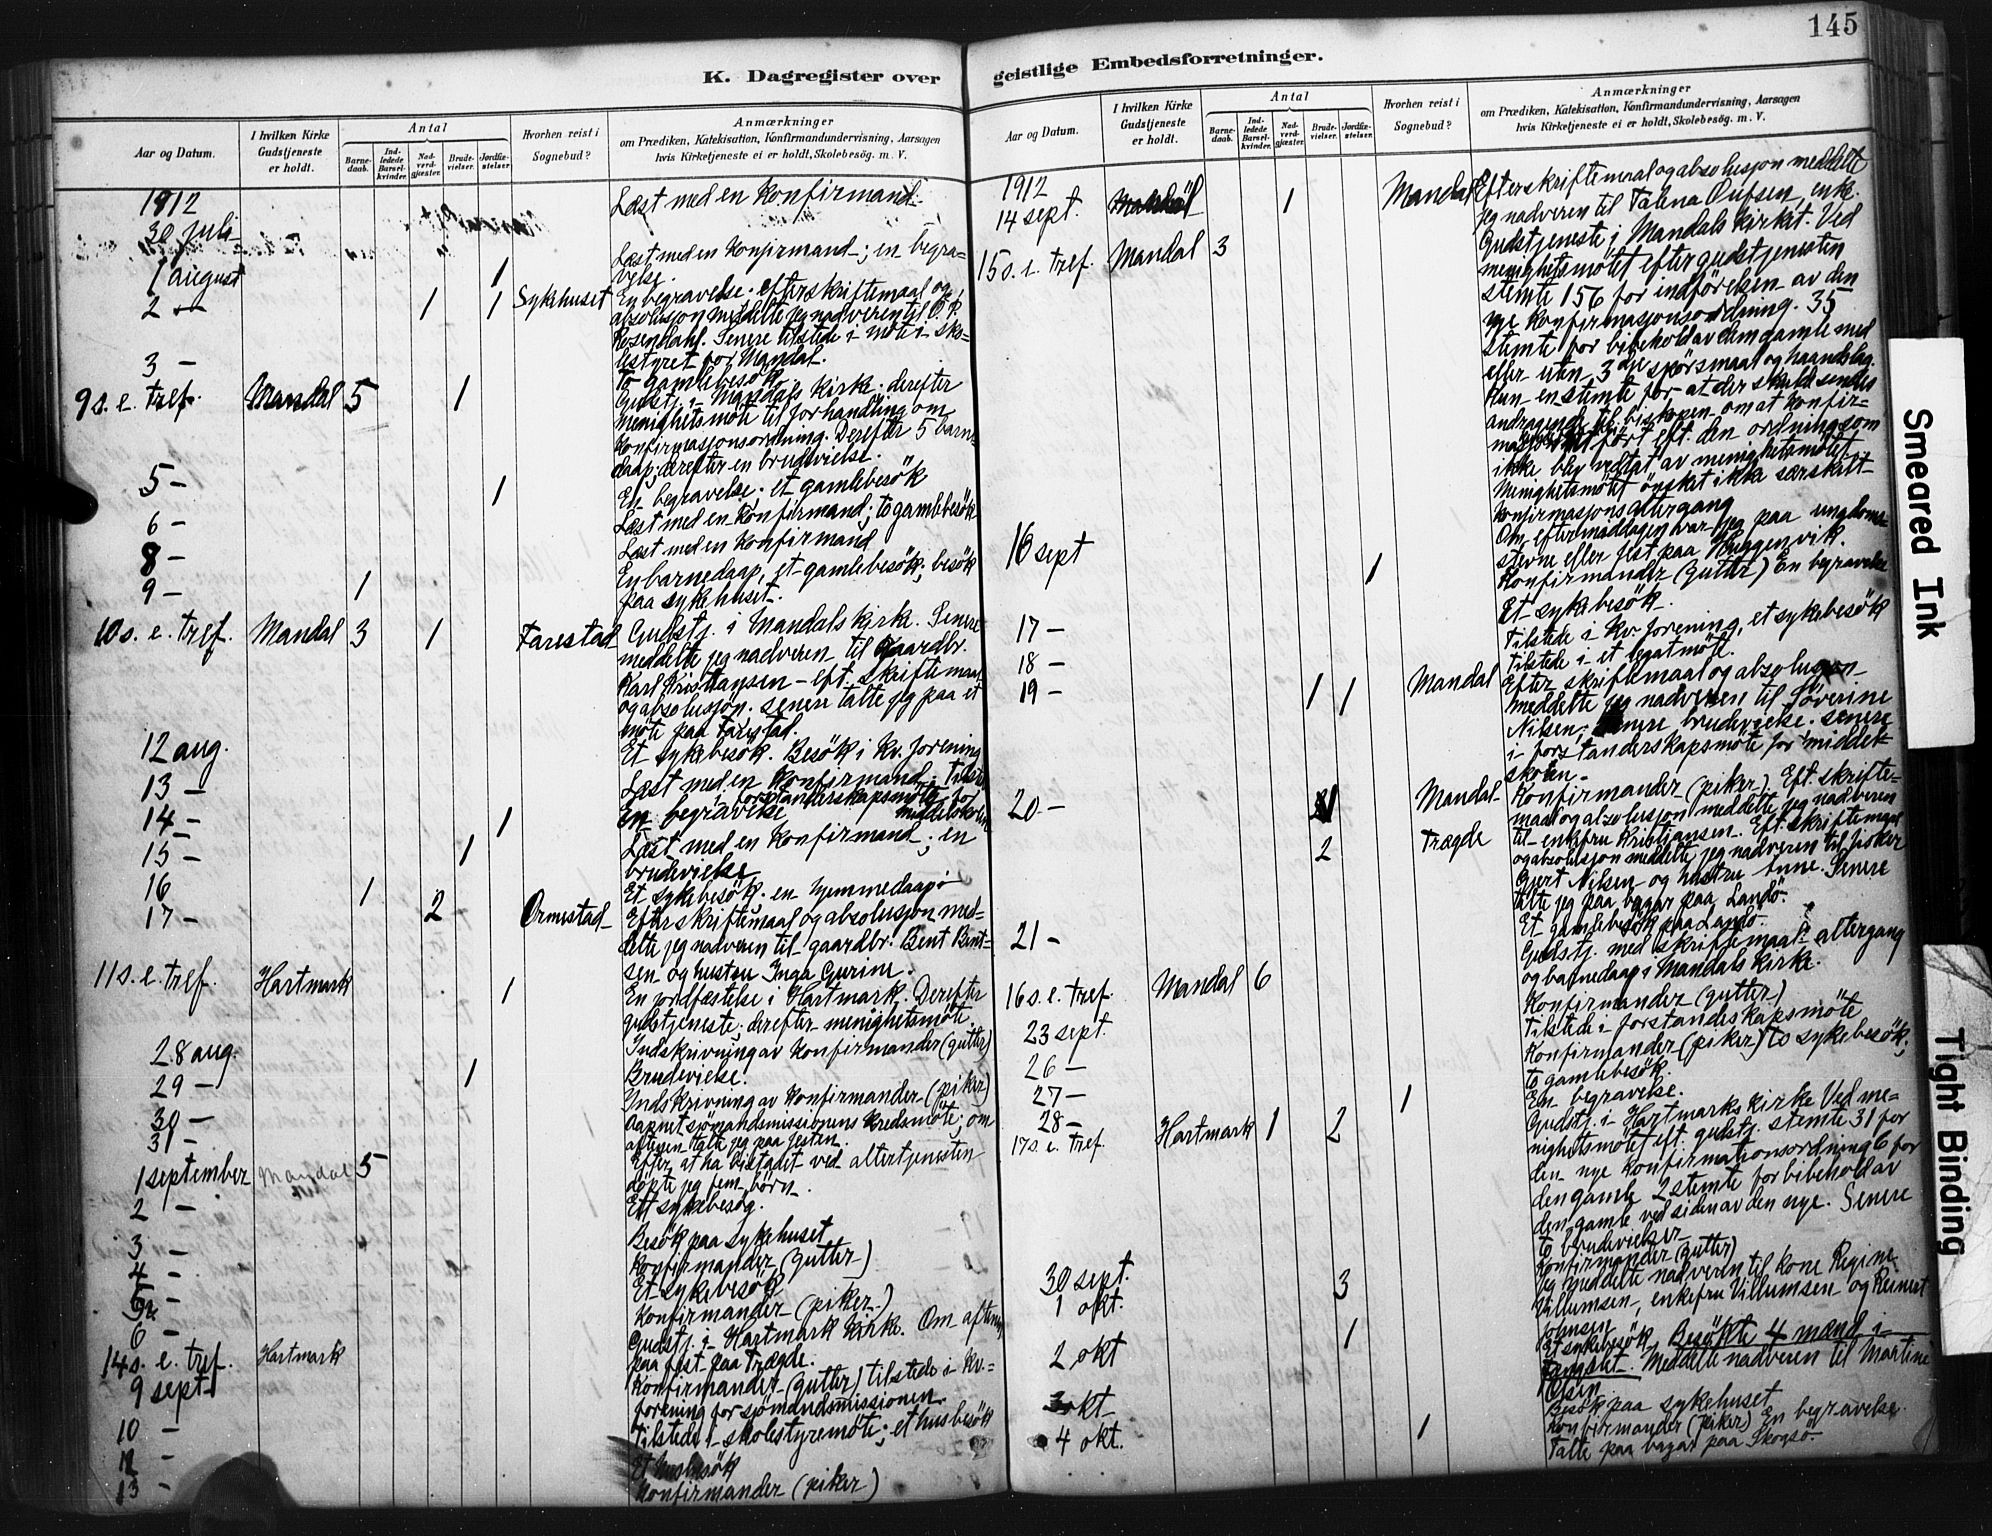 145
K. Dagregister over geistlige Embedsforretninger.
Aar og Datum.
I hvilken Kirke Gudstjeneste er holdt.
Antal
Barnedaab.
Indledede Barselkvinder.
Nadverdgjæster.
Brudevielser.
Jordfæstelser.
Hvorhen reist i Sognebud?
Anmærkninger
om Prædiken, Katekisation, Konfirmandundervisning, Aarsagen
hvis Kirketjeneste ei er holdt, Skolebesøg. m. V.
1912
30 juli
Læst med en Konfirmand.
1 august 1
Læst med en Konfirmand; en begra-
velse.
2 — 1 1 Sykehuset
En begravelse. efter skriftemaal og
absolusjon meddelte jeg nadveren til O. P.
Rosendahl. Senere tilstede i møte i sko-
lestyret for Mandal.
3 —
To gamlebesök.
9 s. e. tref. Mandal 5 1
Gudstj. i Mandals Kirke. derefter
menighetsmöte til forhandling om
Konfirmasjonsordning. Derefter 5 barne
daap; derefter en brudevielse.
5 — 1
En begravelse; et gamlebesök
6 —
Læst med en Konfirmand; to gamlebesök
8 —
Læst med en Konfirmand
9 — 1
En barnedaap, et gamlebesök; besök
paa sykehuset.
10 s. e. tref. Mandal 3 1 Farestad
Gudstj. i Mandals kirke. Senere
meddelte jeg nadveren til Gaardbr.
Karl Kristiansen – eft. skriftemaal
og absolusjon. senere talte jeg paa et
möte paa Farestad.
12 aug.
Et sykebesök. Besök i kv. forening
13 —
Læst med en Konfirmand; Tilste
i forstanderskapsmöte for
middelskolen
14 — 1
En begravelse
15 — 1
Læst med en Konfirmand; en
brudevielse
16 1
Et sykebesök. en hjemmedaap
17 — 2 Ormestad
Efter skriftemaal og absolusjon med-
delte jeg nadveren til gaardbr. Bent Bent-
sen og hustru Inga Gurine.
11 s. e. tref. Hartmark 1
En jordfæstelse i Hartmark. Derefter
gudstjeneste; derefter menighetsmöte
28 aug.
Indskrivning av Konfirmander (gutter)
29 — 1
Brudevielse.
30 —
Indskrivning av Konfirmander (piker)
31 —
aapnet sjömandsmissionens kredsmöte; om
aftenen talte jeg paa festen.
1 september Mandal 5
Efter at ha bistaaet ved altertjenesten
döpte jeg fem börn.
2 —
Et sykebesøg.
3 —
Besök paa sykehuset
4 —
Konfirmander (gutter)
5 —
Et sykebesök
6 —
Konfirmander (piker)
14 s. e. tref. Hartmark
Gudstj. i Hartmark Kirke. Om aftenen
paa fest paa Trægde.
9 sept
Konfirmander (gutter) tilstede i Kv.=
forening for sjömandsmissionen
10 —
Tilstede i skolestyremöte; et husbesök
Et husbesök
13 —
Konfirmander (piker)
Aar og Datum.
I hvilken Kirke Gudstjeneste er holdt.
Antal
Barnedaab.
Indledede Barselkvinder.
Nadverdgjæster.
Brudevielser.
Jordfæstelser.
Hvorhen reist i Sognebud?
Anmærkninger
om Prædiken, Katekisation, Konfirmandundervisning, Aarsagen
hvis Kirketjeneste ei er holdt, Skolebesøg. m. V.
1912
14 sept. 1 Mandal
Efter skriftemaal og absolusjon meddelte
jeg nadveren til Talena Olufsen, enke.
15 s. e. tref. Mandal 3
Gudstjeneste i Mandals kirke. Ved
menighetsmötet efter gudstjenesten
stemte 156 for indförelsen av den
nye konfirmasjonsordning. 35
stemte for bibehold av den gamle med
eller uten 3dje spörsmaal og haandslag.
Kun en stemte for, at der skulde sendes
andragende til biskopen om at konfir=
eft. den ordning som
ikke blev vedtat av menighetsmötet.
Menighetsmötet önsket ikke særskilt
konfirmasjonsaltergang
Om eftermiddagen var jeg paa ungdoms=
stevne eller fest paa
16 sept 1
Konfirmander (gutter) En begravelse
Et sykebesök.
17 —
Tilstede i Kv. forening, et sykebesök
18 —
Tilstede i et legatmöte.
19 — 1 1 Mandal
Efter skriftemaal og absolusjon
meddelte jeg nadveren til Severine
Nilsen. Senere brudevielse. senere
i forstanderskapsmöte for middel-
skolen.
20 — 1 Mandal
Konfirmander (piker) Eft. skrifte=
maal og absolusjon meddelte jeg nadveren
til enkefru Kristiansen.
2 Trægde
Eft. skriftemaal
og absolusjon meddelte jeg nadveren til fisker
Gjert Nilsen og hustru Anne. Senere
talte jeg paa bazar paa Landö.
21 —
Et gamlebesök paa Landö.
16 s. e. tref. Mandal 6
Gudstj. med skriftemaal altergang
og barnedaap i Mandals kirke.
23 sept.
Konfirmander (gutter)
Tilstede i forstandeskapsmöte
26 —
Konfirmander (piker) to sykebesök;
to gamlebesök.
27 —
28 — 1
En begravelse.
17 s. e. tref. Hartmark 1 2
Gudstj. i Hartmarks kirke Ved me=
nighetsmötet eft. gudstj. stemte 31 for
den nye konfirmationsordning 6 for
den gamle 2 stemte for bibehold av
den gamle ved siden av den nye. Senere
to brudevielser
30 sept.
Konfirmander (gutter)
1 okt. 3
Jeg meddelte nadveren til kone Regine
Villumsen, enkefru Villumsen og Reinert
Johnsen
2 okt 1
Et sykebesök Besökte 4 mænd i
fængslet. Meddelte nadveren til Martine
Olsen
3 okt
Besök paa sykehuset
4 okt. 1
Konfirmander (piker) En begravelse.
Talte paa bazar paa Skogsö.
Smeared Ink
Tight Binding